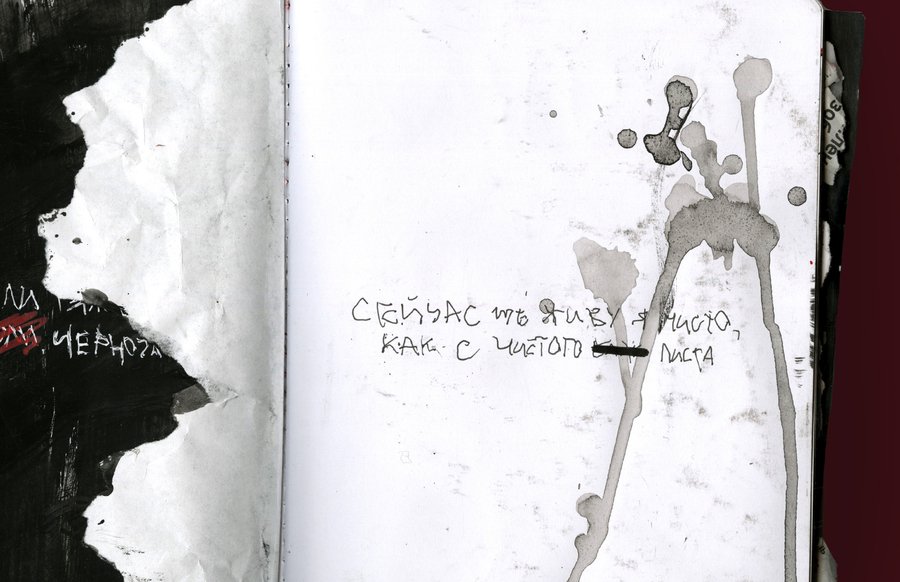 ЧЕРНОТА
СЕЙЧАС ЖЕ ЖИВУ Я ЧИСТО,
КАК С ЧИСТОГО ЛИСТА